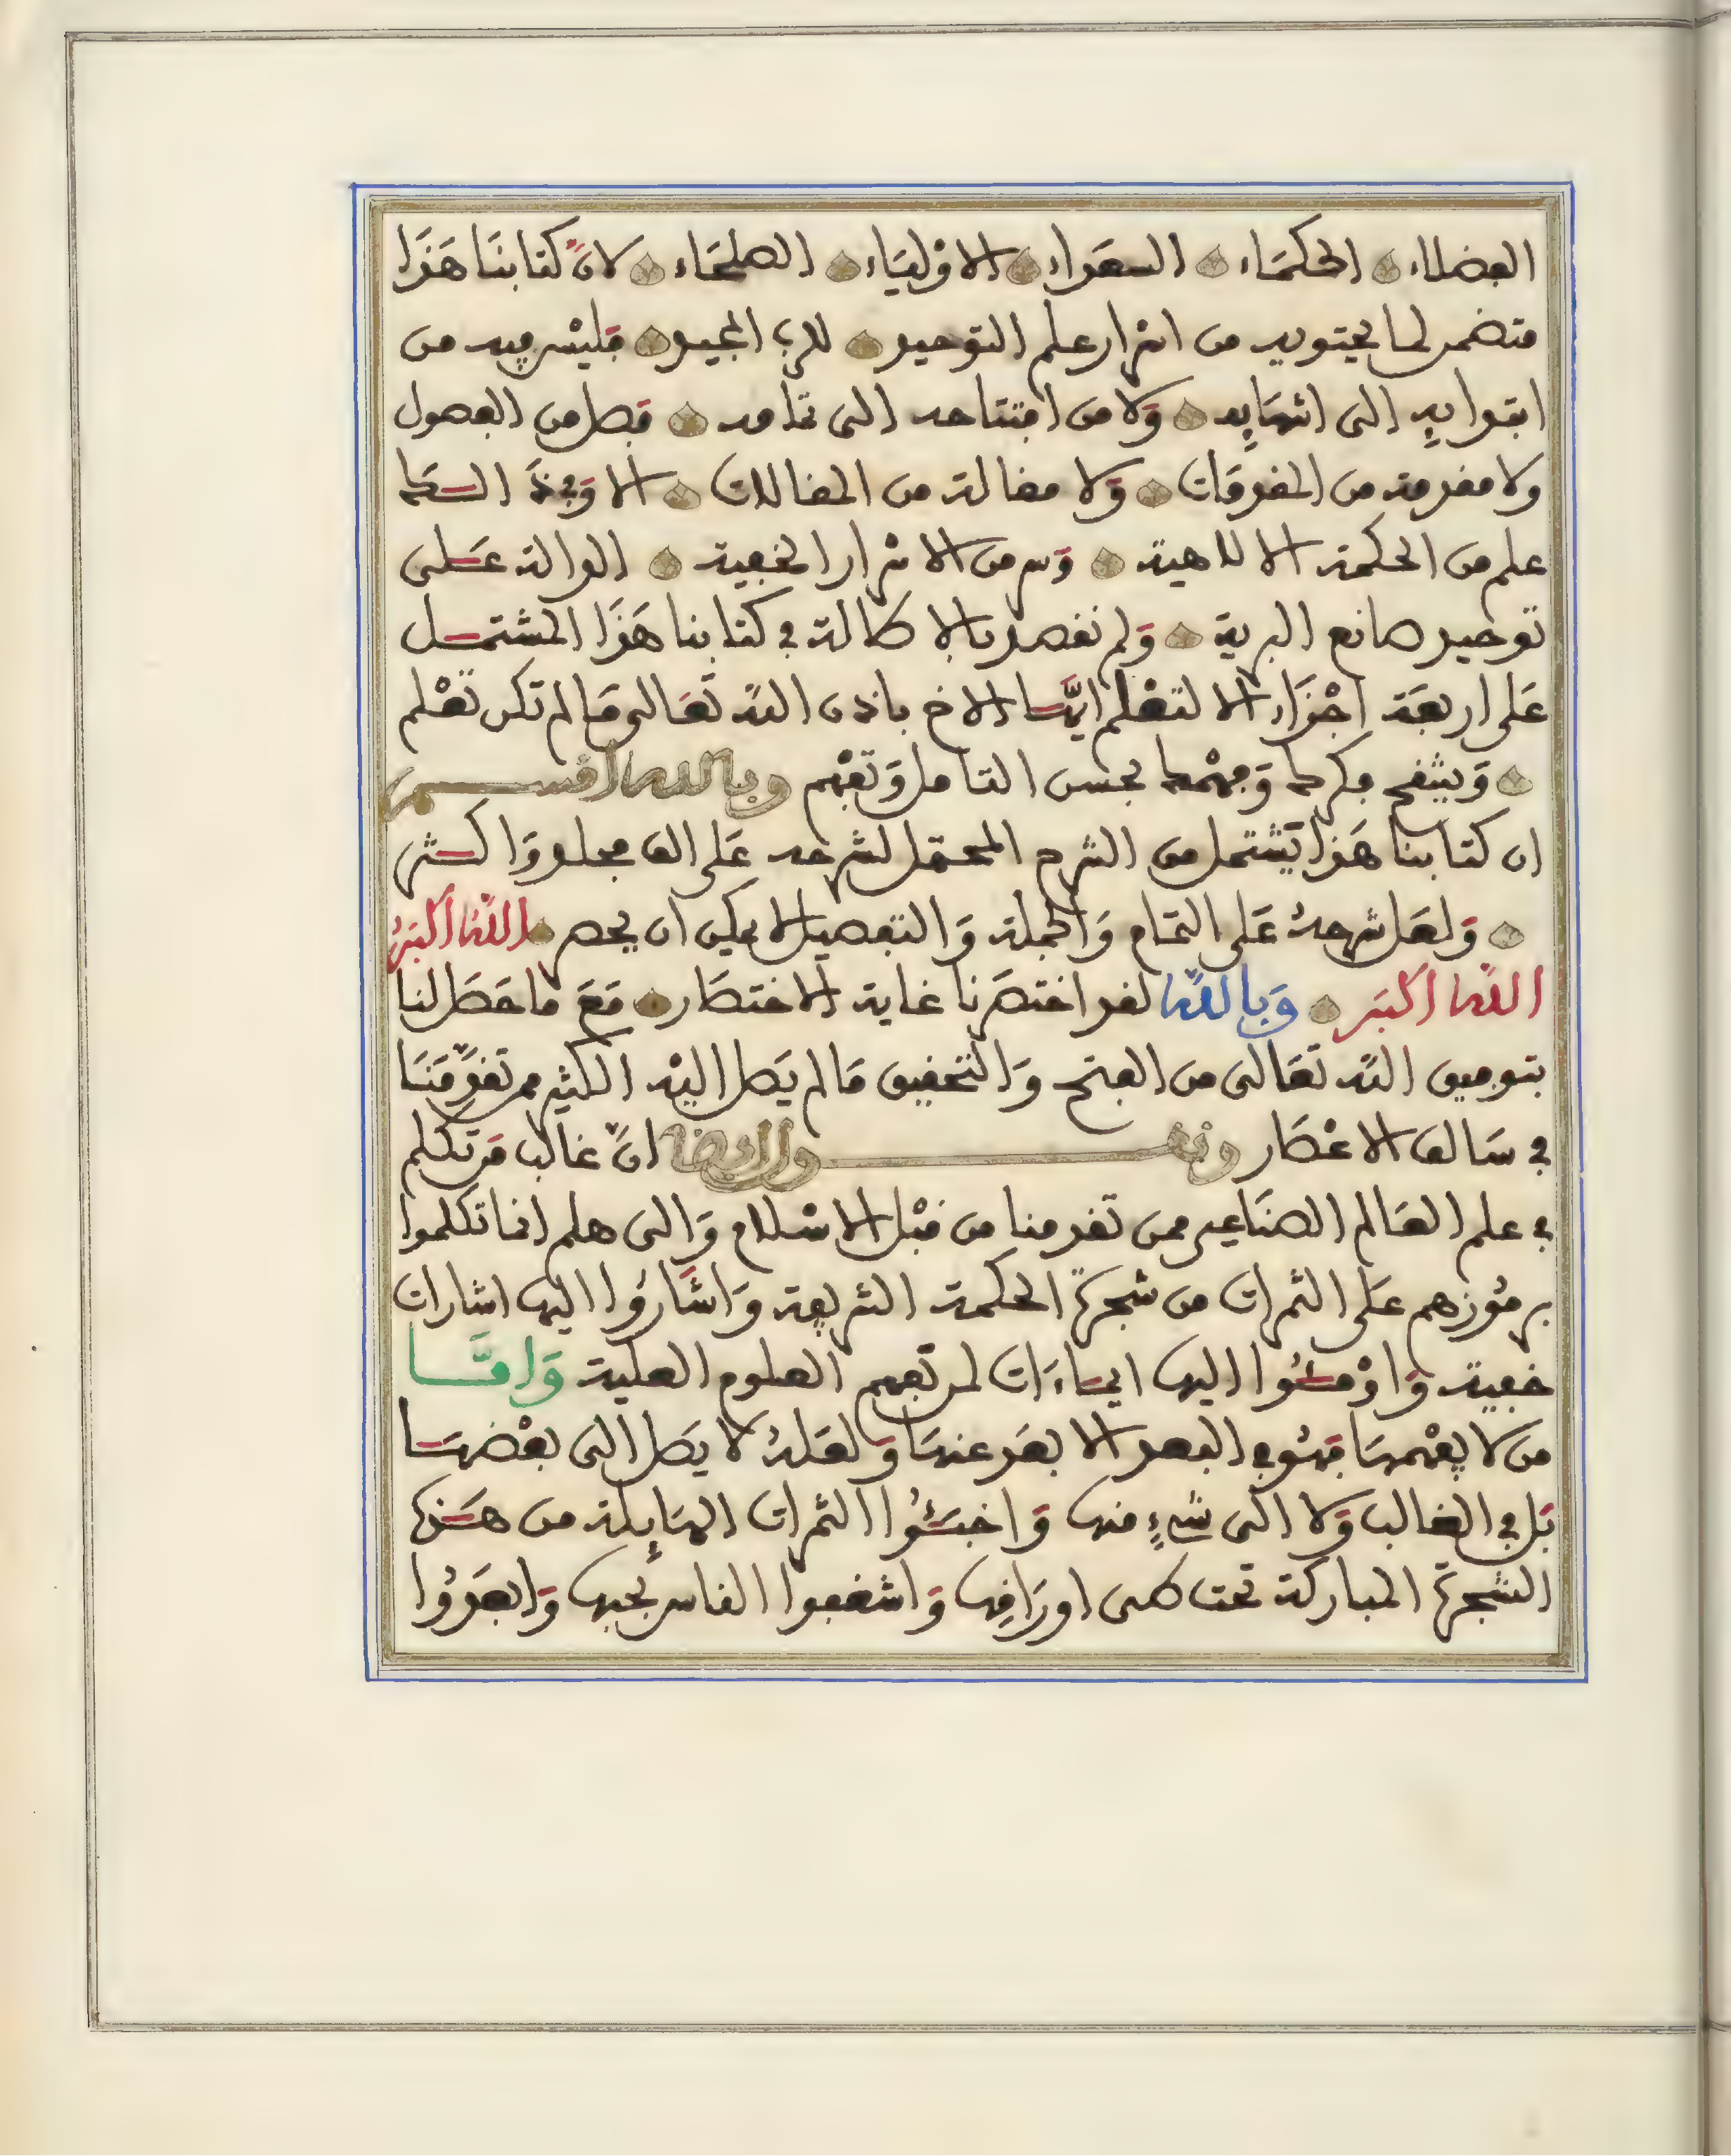 الفضلاء الحكماء السعداء الاوْلياء الصلحاء لانّ كتابنا هَذَا
متضمن لما يحتويه من اسْرار علم التوحيد للرب المجيد فليْس فيه من
ابتدايهِ الى انتهايِه وَلا من افتتاحه الى تمامه فصل من الفصول
ولا مقدمة من المقدمَات وَلا مقالة من المقالات الا وَفيهَ
علم من الحكمة الالاهية وَسر من الاسْرار الخفية الدالة عَلى
توحيد صانع البرية وَلم نقصد بالاطالة في كتابنا هَذَا المشتمل
عَلى اربعَة اجْزَاء الا لتعْلم ايّها الاخ باذن اللّه تعَالى مَا لم تكن تعْلم
وَيثقف فكرك وَفهْمك بحسن التامل وَتفْهم وبالله اقسم
ان كتابنا هَذا يَشتمل من الشرح المحتمل لشرحه عَلى الف مجلد وَاكثر
وَلعَل شرحهُ عَلى التمَام وَالجملة وَالتفصيل لا يمكن ان يحصر اللّه اكبَرُ
اللّه اكبَر وَباللّه لقد اختصَرنا غاية الاختصَار مَعَ ما حَصَل لنا
بتوفيق اللّه تعَالى من الفتح وَالتحقيق مَا لم يَصل اليْه الكثير ممن تقدّمَنَا
في سَالف الاعْصَار ونقول ايضا انّ غالب مَن تكلم
في علم العَالم الصنَاعي ممن تقدمنا من قبْل الاسْلام وَالى هلم انما تكلموا
برمُوزهم عَلى الثمرات من شجرة الحكمة الشريفة وَاشَارُوا اليها اشارات
خفية وَاوْمئُوا اليها ايمَاءَات لمن تفهم العلوم العلية وَامَّا
من لا يفْهمهَا فهُو في البعد الابعَد عنهَا وَلعَلهُ لا يصَل الى بعْضهَا
بَل في الغالب وَلا الى شيءٍ منها وَاخبئُوا الثمرات الهَايلة من هَذه
الشجرة المباركة تحت طى اورَاقِها وَاشغفوا الناس بحبها وَابعَدُوا